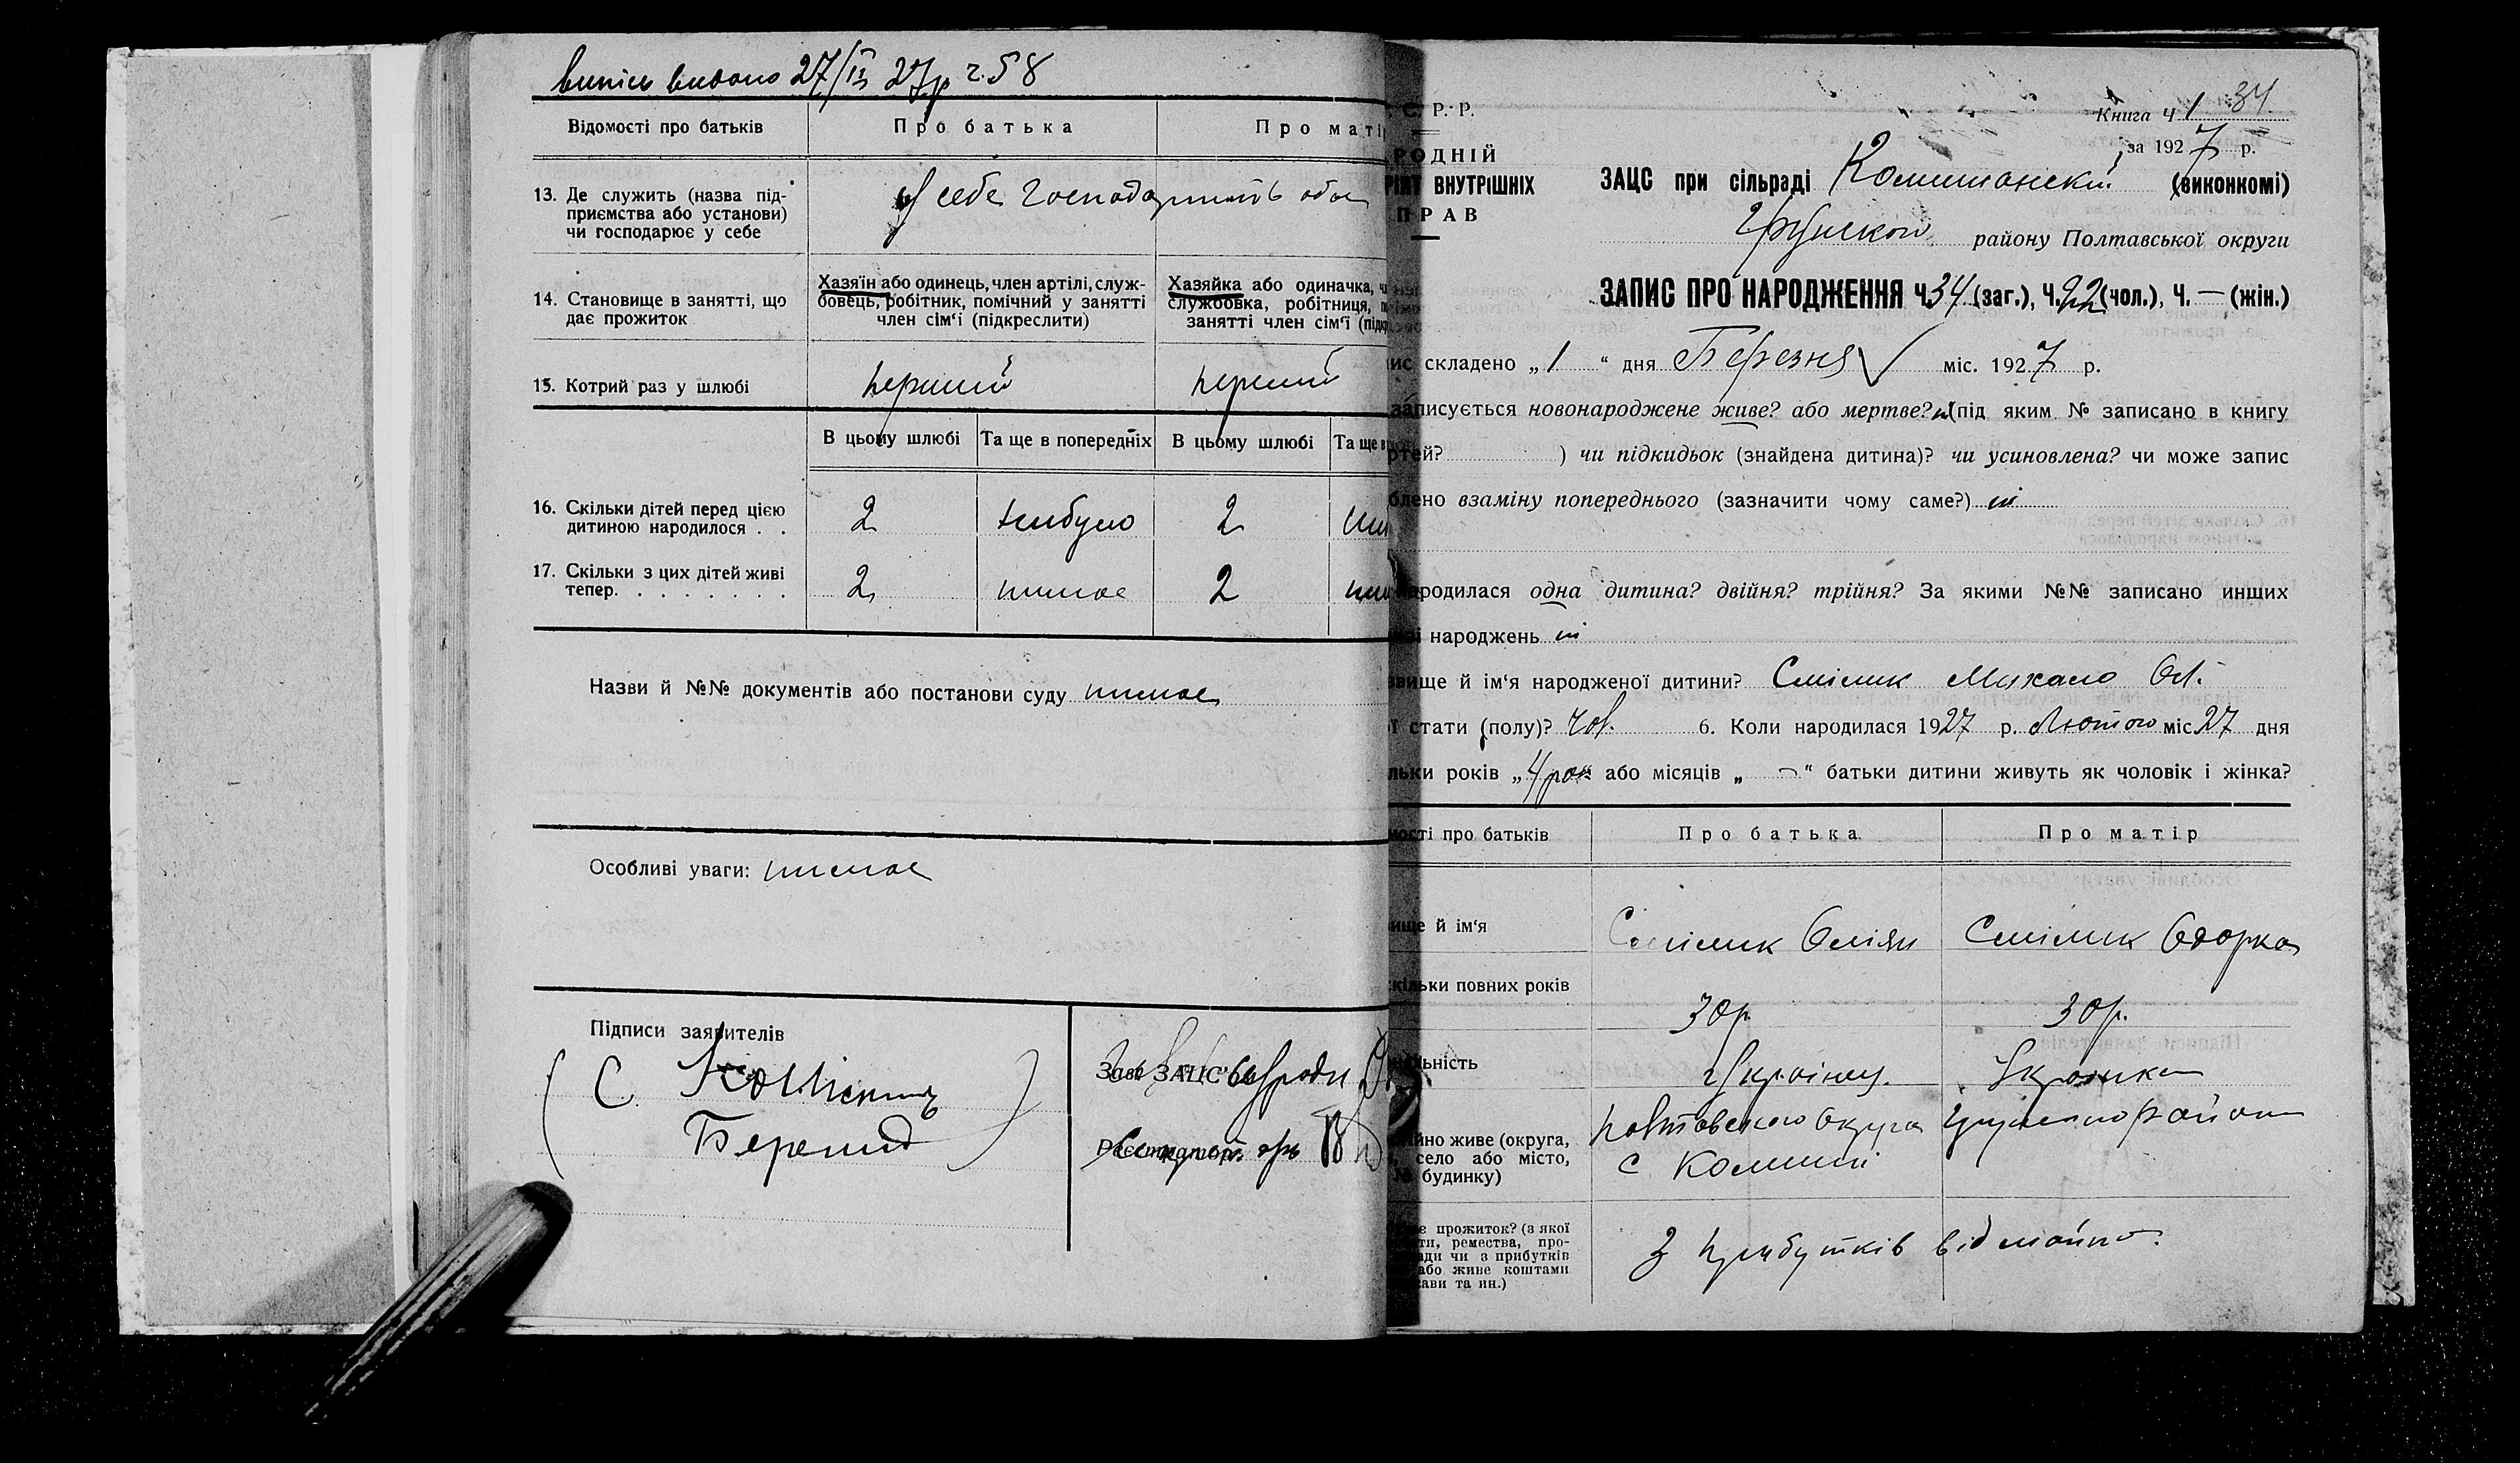 випись видано 27/III 27р ч.58
Відомості про батьків
Про батька
Про маті
13. Де служить (назва під-
приємства або установи)
чи господарює у себе
У себе господарюють обоє
14. Становище в занятті, що
дає прожиток
Хазяїн або одинець, член артілі, служ-
бовець, робітник, помічний у занятті
член сім'ї (підкреслити)
Хазяйка або одиначка, ч
службовка, робітниця, п
занятті член сім'ї (підк
15. Котрий раз у шлюбі
перший
перший
В цьому шлюбі
Та ще в попередніх
В цьому шлюбі
Та ще в
16. Скільки дітей перед цією
дитиною народилося . .
2
небуло
2
17. Скільки з цих дітей живі
тепер. . . . . . . .
2
немає
2
Назви й №№ документів або постанови суду немає
Особливі уваги: немає
Підписи заявителів
Зав. ЗАЦС'ом
Реєстратор
С. Р. Р.
РОДНІЙ
РІЯТ ВНУТРІШНІХ
ПРАВ
Книга Ч. 1 34.
за 1927 р.
ЗАЦС при сільраді (виконкомі)
району Полтавської округи
ЗАПИС ПРО НАРОДЖЕННЯ Ч. 34 (заг.), Ч. 22 (чол.), Ч. — (жін.)
ис складено „1“ дня Березня міс. 1927 р.
записується новонароджене живе? або мертве? ні (під яким № записано в книгу
ртей? ) чи підкидьок (знайдена дитина)? чи усиновлена? чи може запис
блено взаміну попереднього (зазначити чому саме?) ні
ародилася одна дитина? двійня? трійня? За якими №№ записано инших
народжень ні
звище й ім'я народженої дитини? Смілик Михайло Ом.
ї стати (полу)? чол. 6. Коли народилася 1927 р. Лютого міс. 27 дня
льки років „4 рок“ або місяців „—“ батьки дитини живуть як чоловік і жінка?
мості про батьків
Про батька
Про матір
вище й ім'я
Смілик Омелян
Смілик Одарка
кільки повних років
30р.
30р.
льність
Українец.
Українка
ійно живе (округа,
село або місто,
№ будинку)
Полтавского округа району
с
є прожиток? (з якої
ти, ремества, про-
ади чи з прибутків
або живе коштами
жави та ин.)
З прибутків від майна.